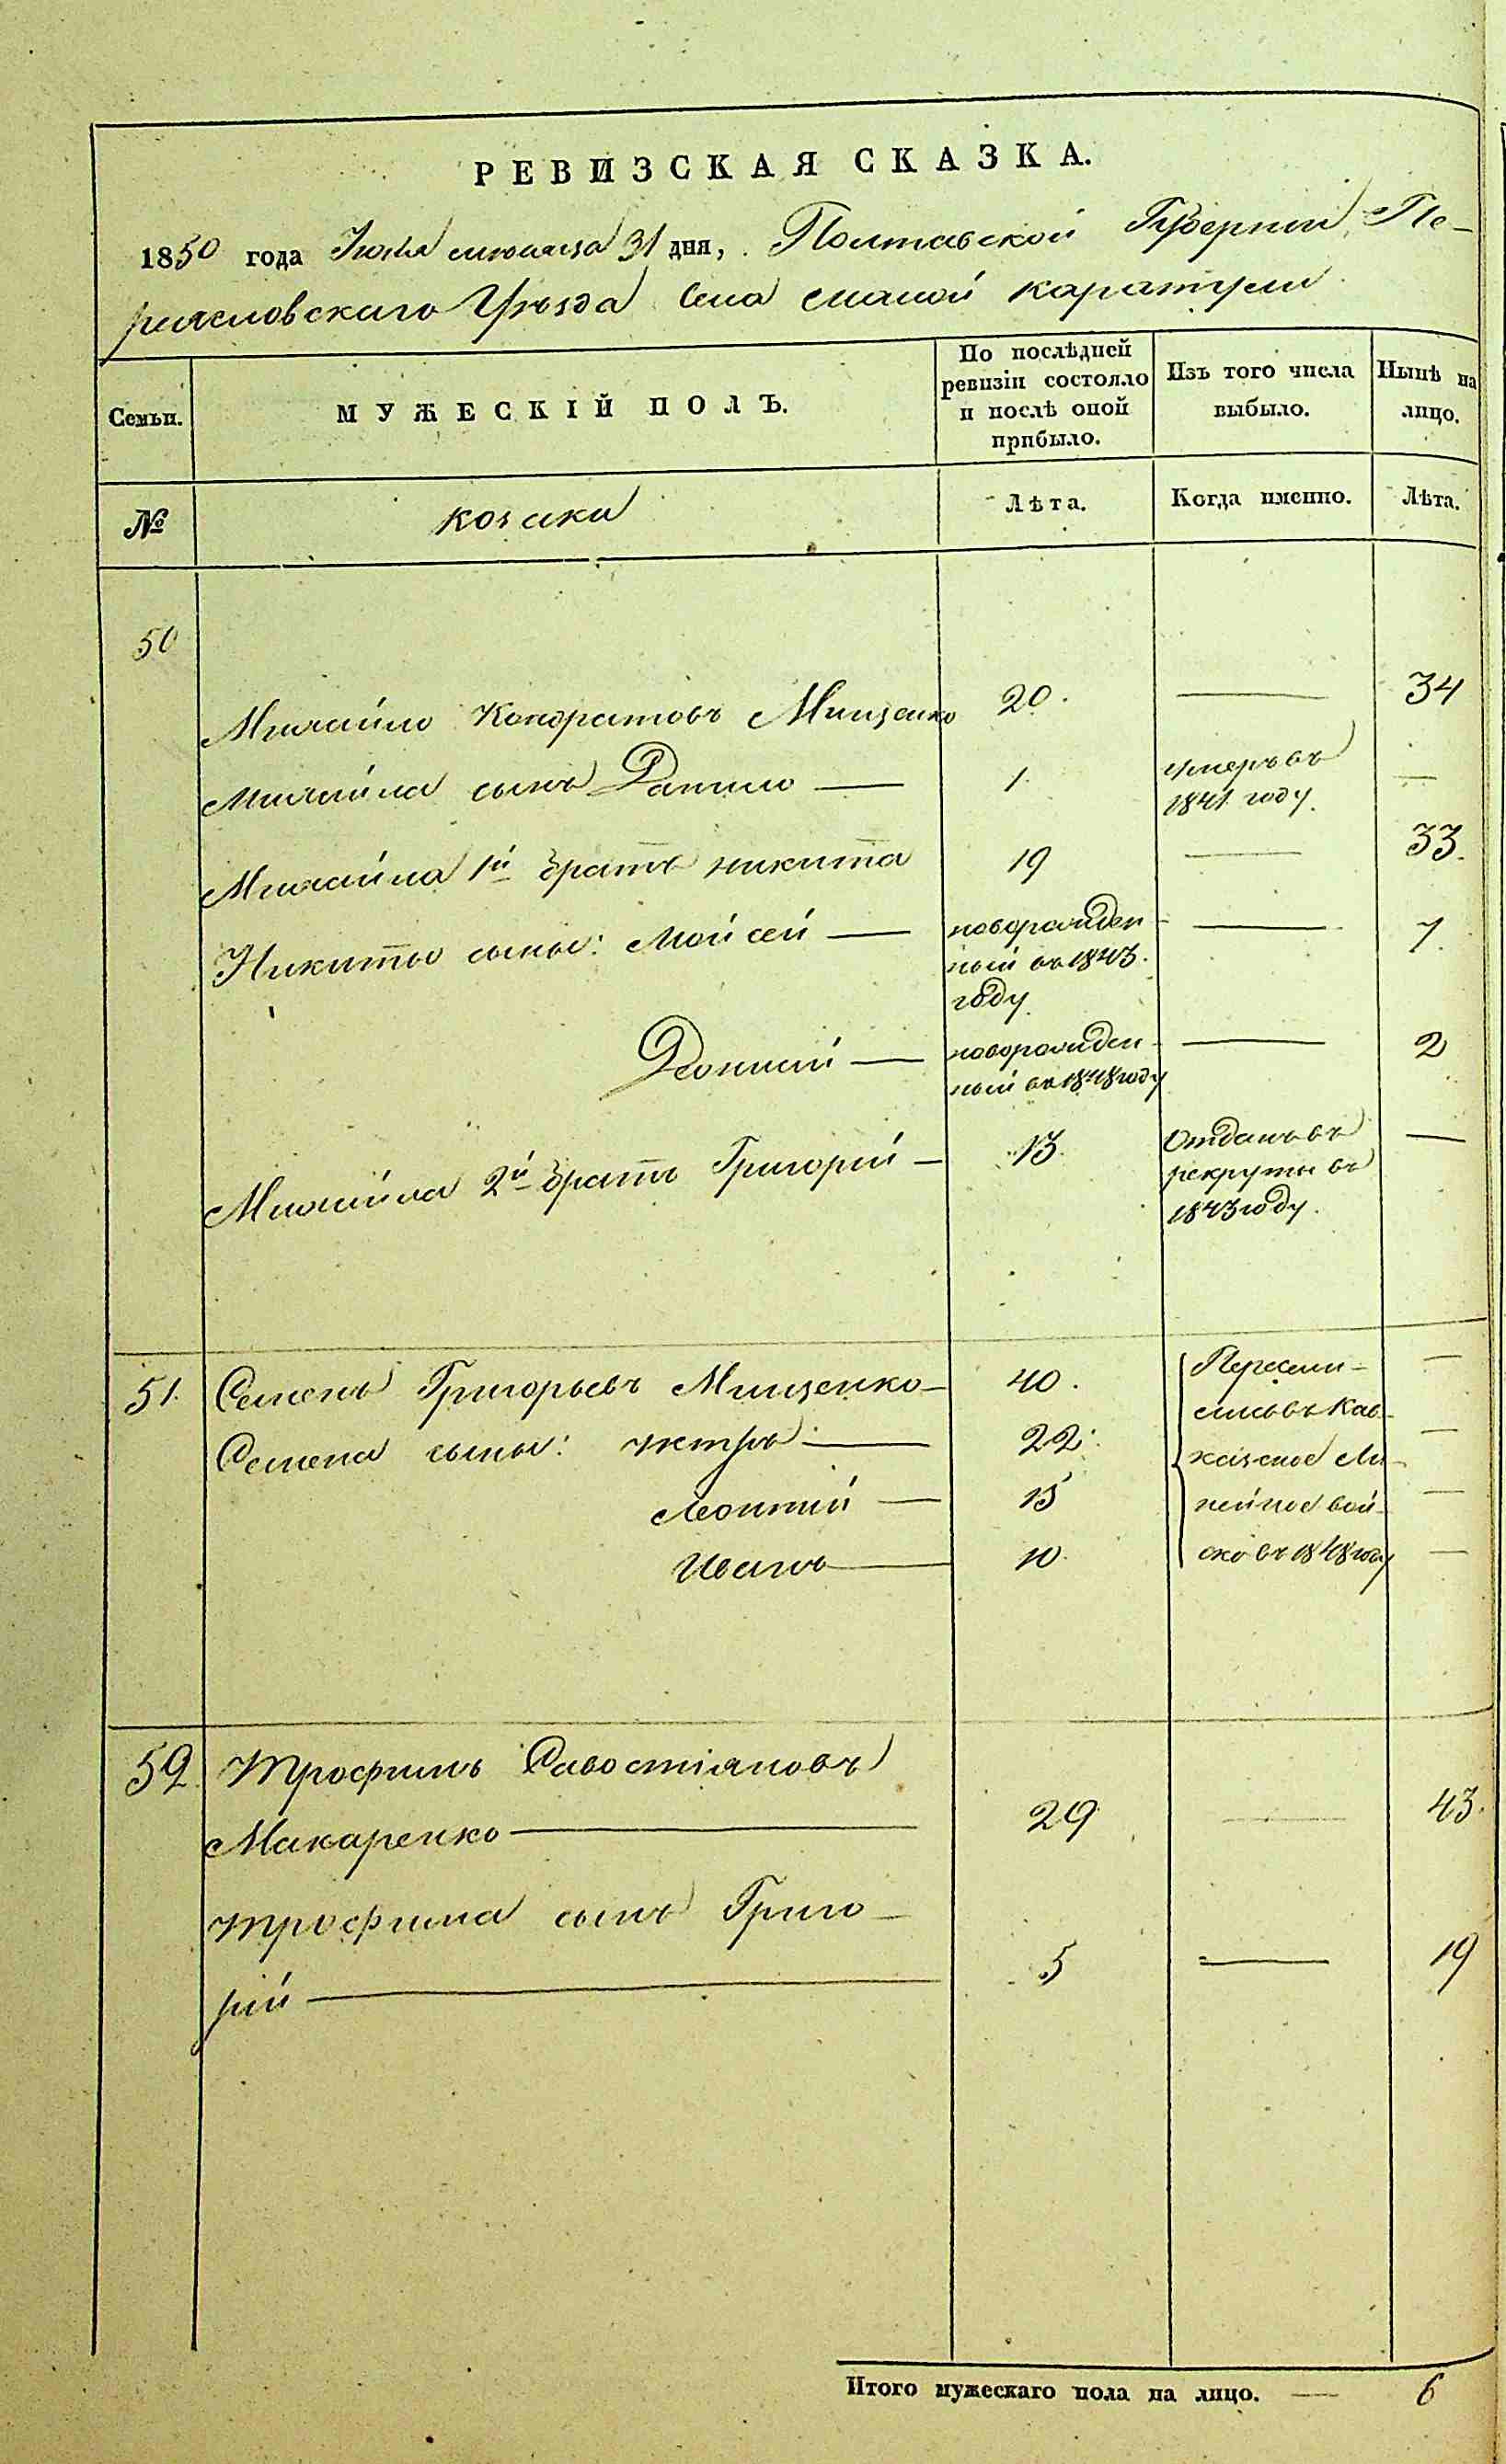 РЕВИЗСКАЯ СКАЗКА.
1850 года Июля месяца 31 дня, Полтавской Губерніи, Пе-
реяславскаго Уѣзда Села малой каратули
Семьи.
МУЖЕСКІЙ ПОЛЪ.
По послѣдней
ревизіи состояло
и послѣ оной
прибыло.
Изъ того числа
выбыло.
Нынѣ на
лицо.
№
козаки
Лѣта.
Когда именно.
Лѣта.
50
Михайло Кондратовъ Мищенко 20. — 34
Михайла сынъ Данило — 1. умеръ въ —
1841 году.
Михайла 1й братъ никита 19 — 33.
Никиты сыны: Мойсей — новорожден- — 7.
ный въ 1843.
году
Діонисій — новорожден- — 2
ный въ 1848 году
Михайла 2й братъ Григорій — 13. Отданъ въ —
рекруты въ
1843 году.
51. Семенъ Григорьевъ Мищенко — 40. Пересели- —
лись въ Кав-
Семена сыны: петръ — 22. —
казское Ли-
Леонтій — 15 нейное вой- —
Иванъ — 10. ско въ 1848 году —
52. трофимъ Савостіяновъ
Макаренко — 29 — 43.
трофима сынъ Григо-
рій — 5 — 19
Итого мужескаго пола на лицо. — 6